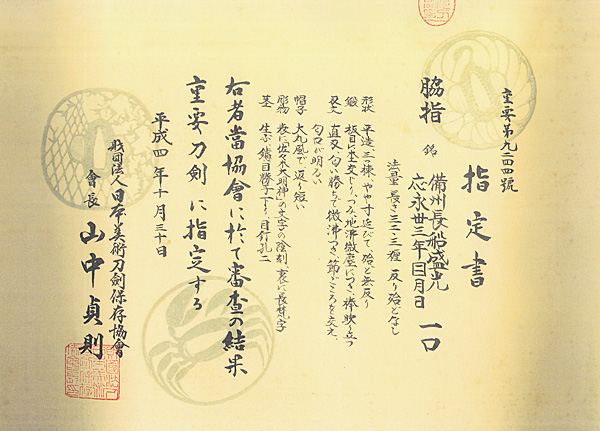 重要第九二四號
指定書
脇指 銘 備州長船盛光
応永卅三年二月日 一口
法量 長さ三二・三糎 反り殆どなし
形状 平造、三つ棟、やや寸延びて、殆ど無反り
鍛 板目に杢交じり、つみ、地沸微塵につき、棒映り立つ
刃文 直刃、匂い勝ちで微沸つき、節ごころを交え、
匂口が明るい
帽子 大丸風で、返り短い
彫物 表に佐々木大明神の文字の陰刻、裏に長梵字
茎 生ぶ、鑢目勝手下り、目釘孔二
右者當協會に於て審査の結果
重要刀劍に指定する
平成四年十月三十日
財団法人日本美術刀劍保存協會
會長 山中貞則